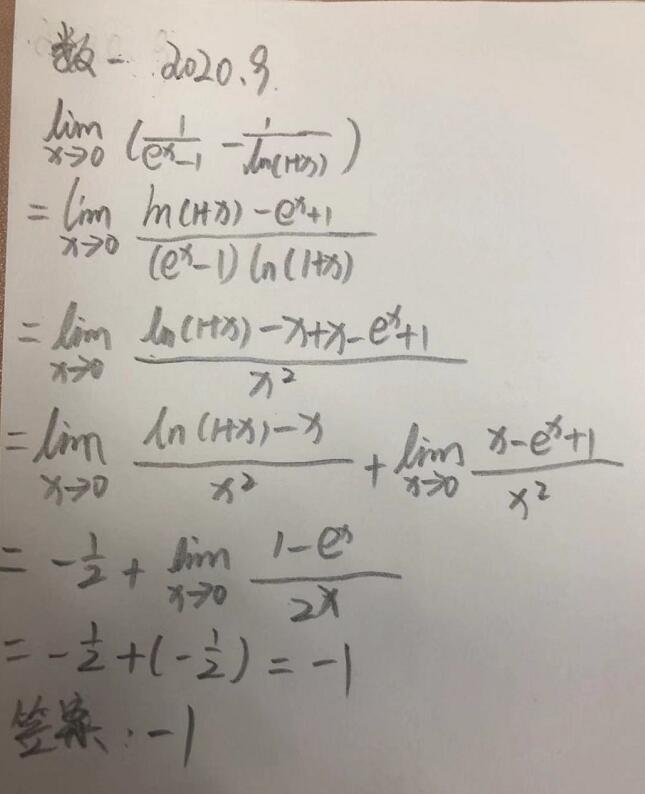 数一 2020.9
lim x→0 (1/(e^x-1) - 1/ln(1+x))
= lim x→0 (ln(1+x)-e^x+1)/((e^x-1)ln(1+x))
= lim x→0 (ln(1+x)-x+x-e^x+1)/x^2
= lim x→0 (ln(1+x)-x)/x^2 + lim x→0 (x-e^x+1)/x^2
= -1/2 + lim x→0 (1-e^x)/2x
= -1/2+(-1/2) = -1
答案:-1